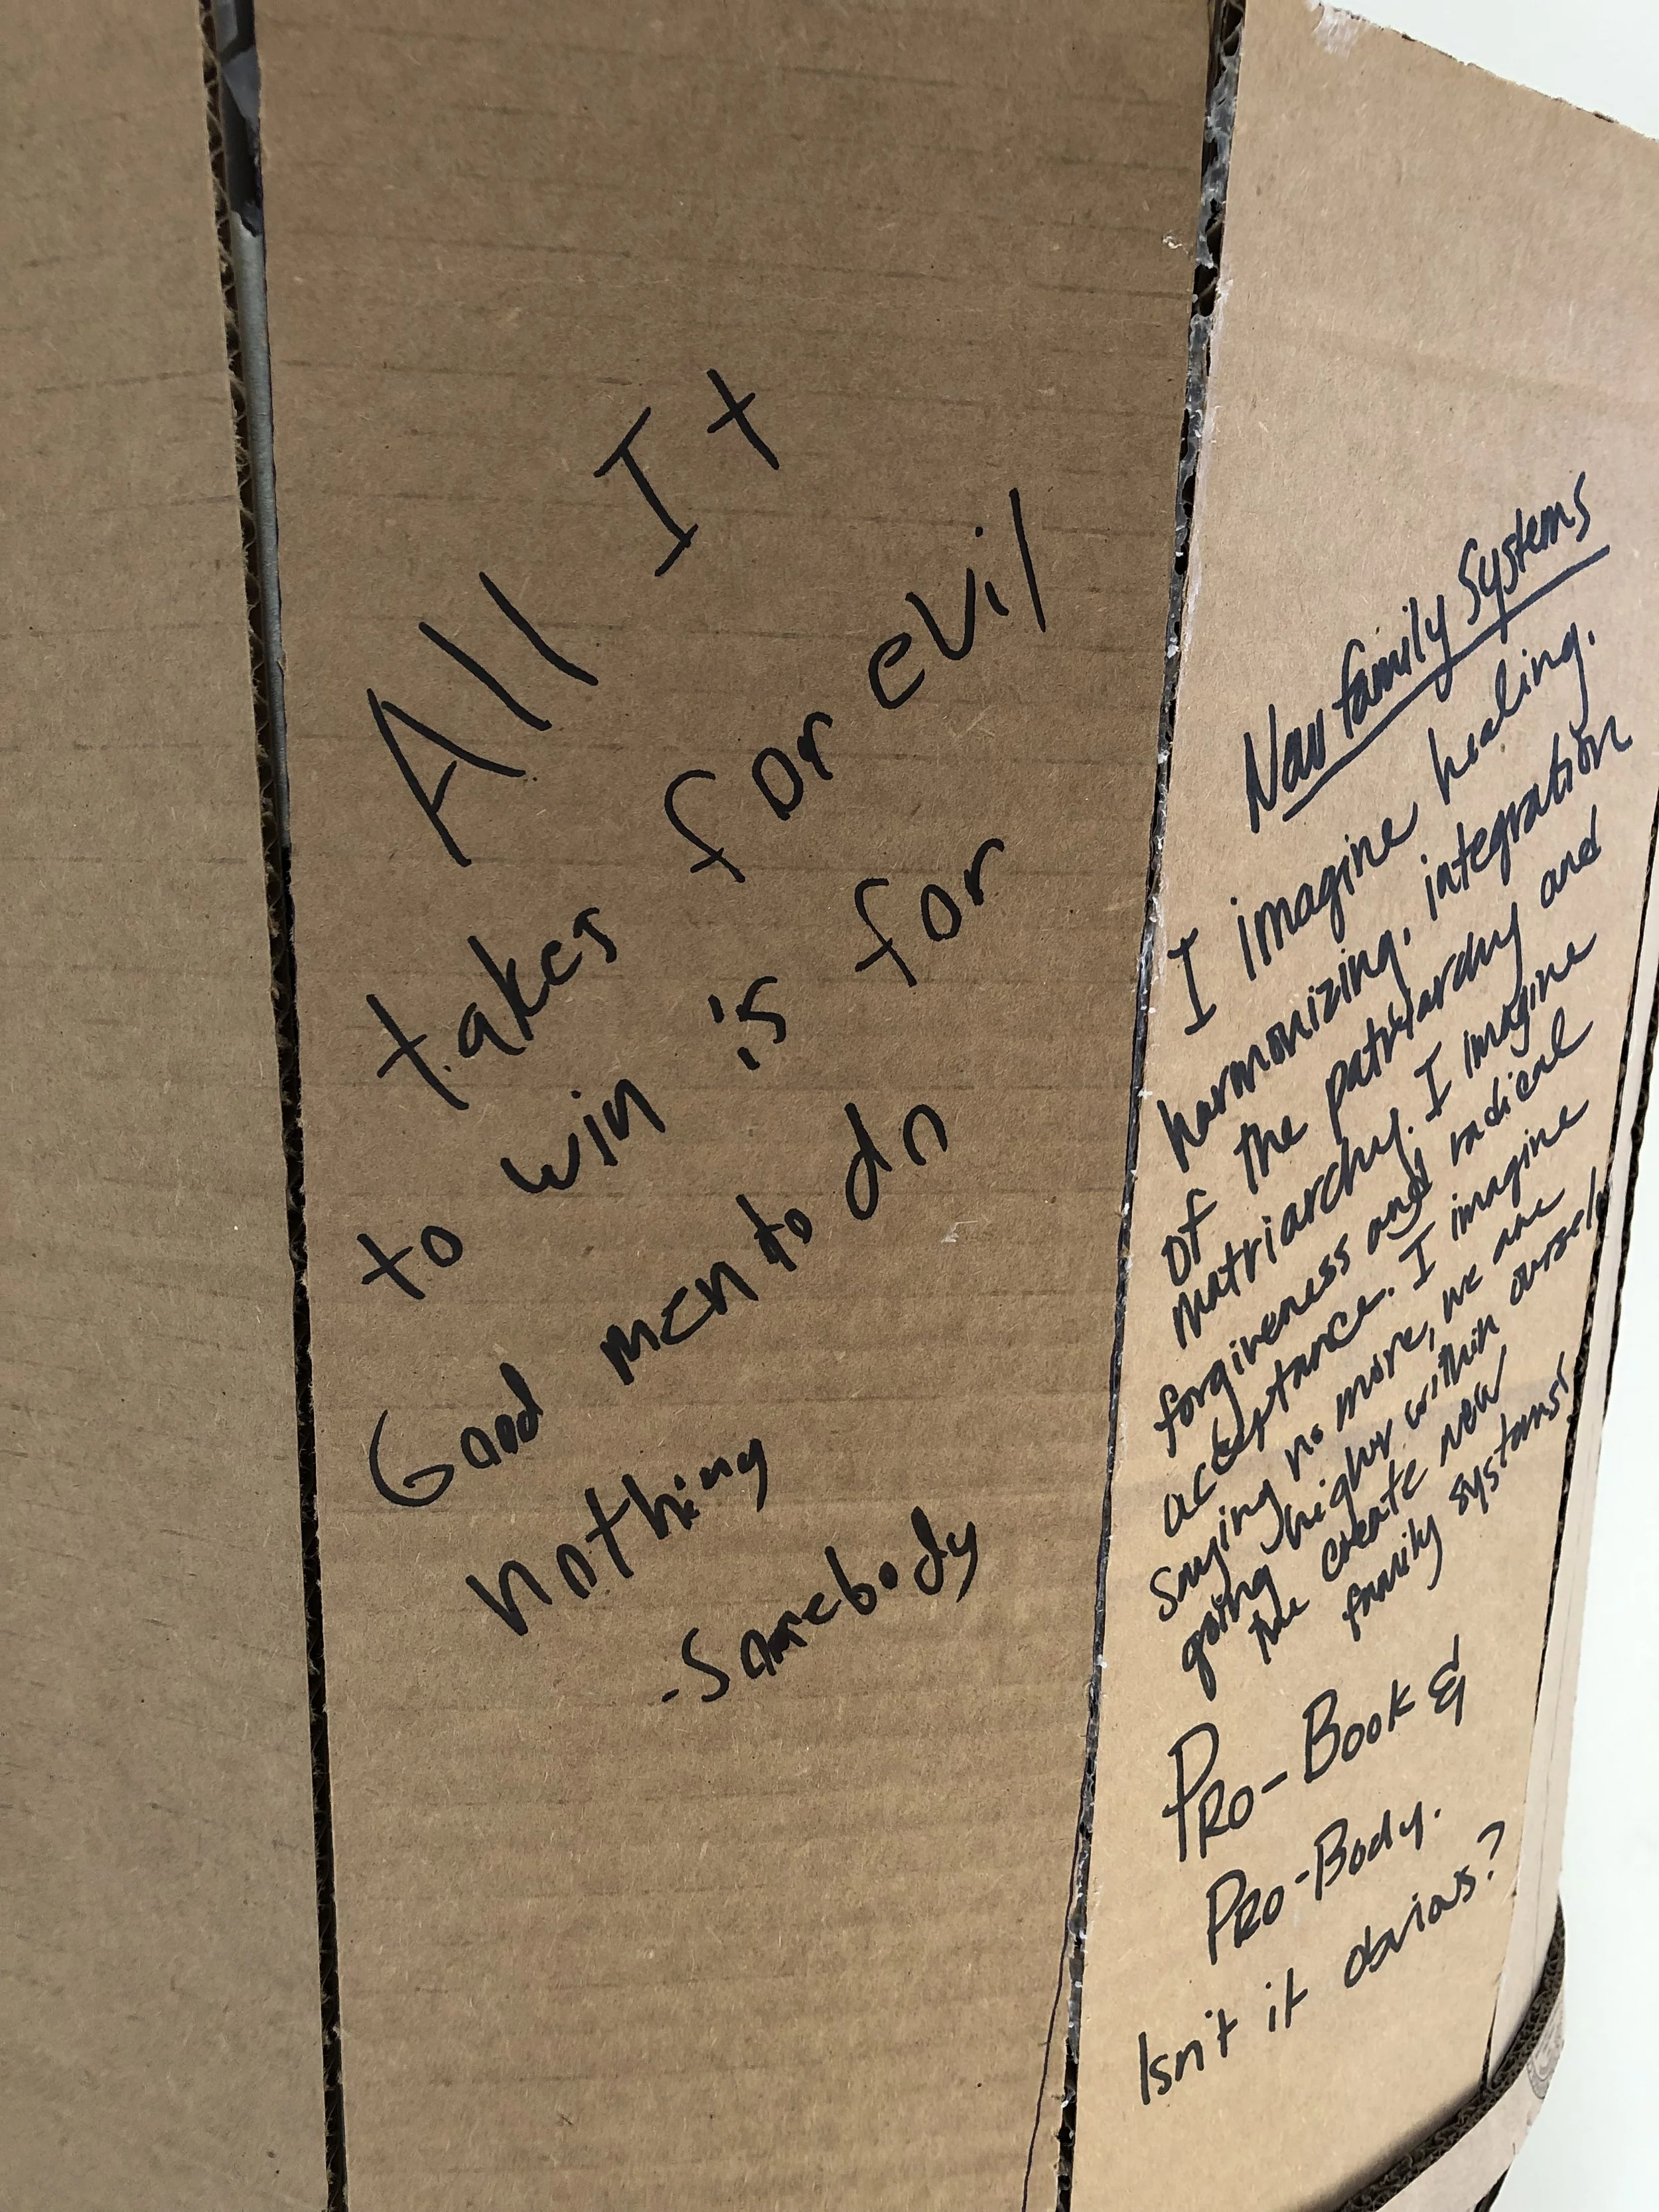 All It
takes for evil
to win is for
Good men to do
nothing
-Somebody
New family Systems
I imagine healing.
harmonizing, integration
of the patriarchy and
matriarchy. I imagine
forgiveness and radical
acceptance. I imagine
saying no more, we are
going higher within
the create new
family systems!
PRO-BOOK &
PRO-BODY.
Isn't it obvious?